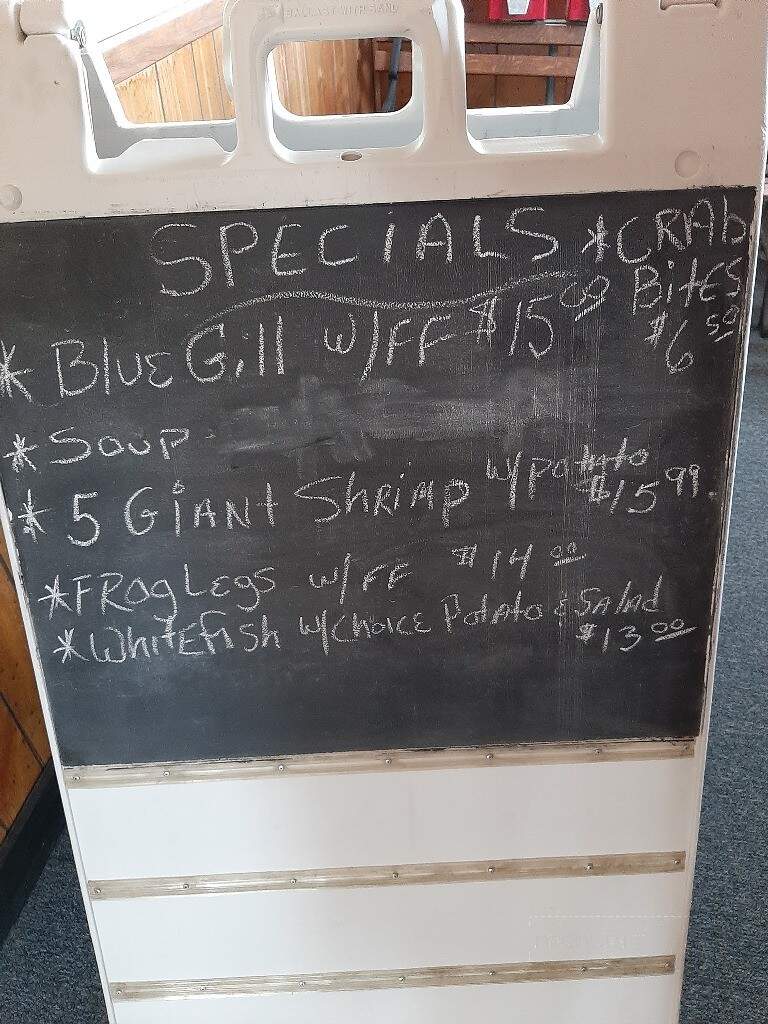 BALLAST WITH SAND
SPECiALS *CRAb
BitES
$6 50
* BluE Gill w/FF $15 00
* Soup
* 5 GiANt ShRimp w/potato $15 99
* FRog LEgs w/FF $14 00
* WhitEfish w/choicE potAto & SAlad
$13 00